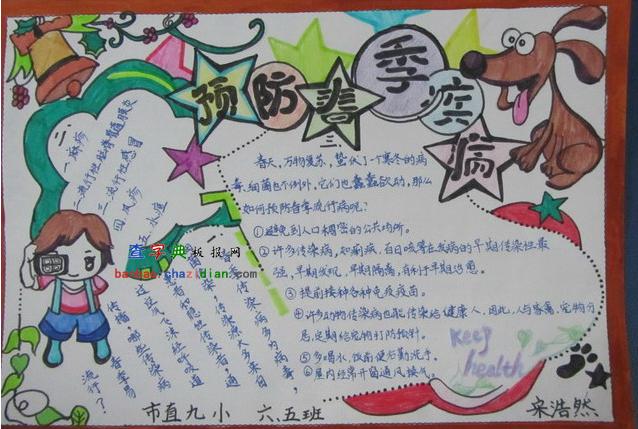 预防春季疾病
春天,万物复苏,蛰伏了一个寒冬的病
毒、细菌也不例外,它们也蠢蠢欲动,那么
如何预防春季流行病呢?
①避免到人口稠密的公共场所。
②许多传染病,如痢疾、百日咳等在发病的早期传染性最
强,早期发现,早期隔离,有利于早期治愈。
③提前接种各种免疫疫苗。
④许多动物传染病也能传染给健康人,因此,人与家禽、宠物分
居,定期给宠物打防预针。
⑤多喝水,饭前便后勤洗手。
⑥屋内经常开窗通风换气。
keep
health
二、
一、麻疹
二、流行性脑脊髓膜炎
三、流行性感冒
四、风疹
五、水痘
春季传染病多为病毒
传播,哪些传染病春季易
流行?
查字典板报网
banbao.chazidian.com
市直九小 六.五班
宋浩然